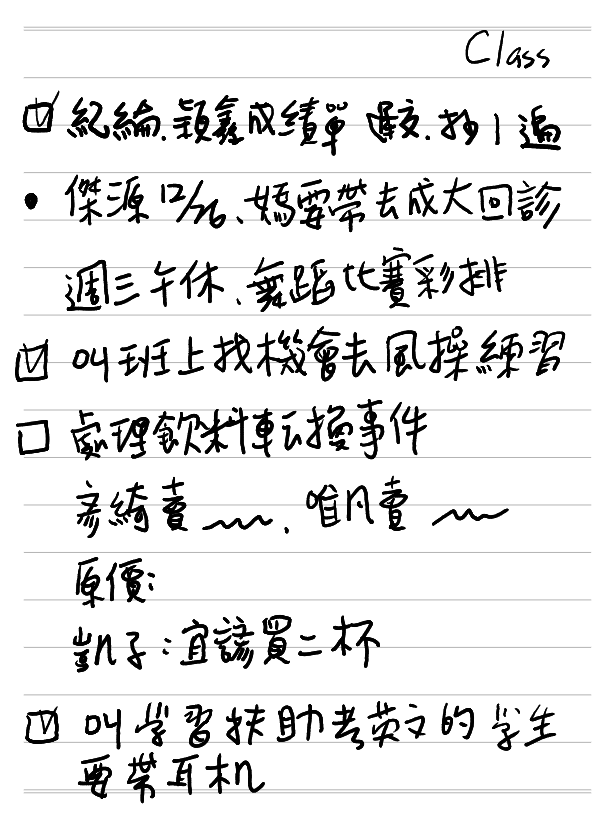 Class
☑ 紀綸.穎鑫成績單 遲交.抄1遍
• 傑源12/26、嬌要帶去成大回診
週三午休、舞蹈比賽彩排
☑ 叫班上找機會去風操練習
☐ 處理飲料転換事件
彥綺賣 、唯凡賣
原價:
凱子:宜諺買二杯
☑ 叫学習扶助考英文的学生
要帶耳机